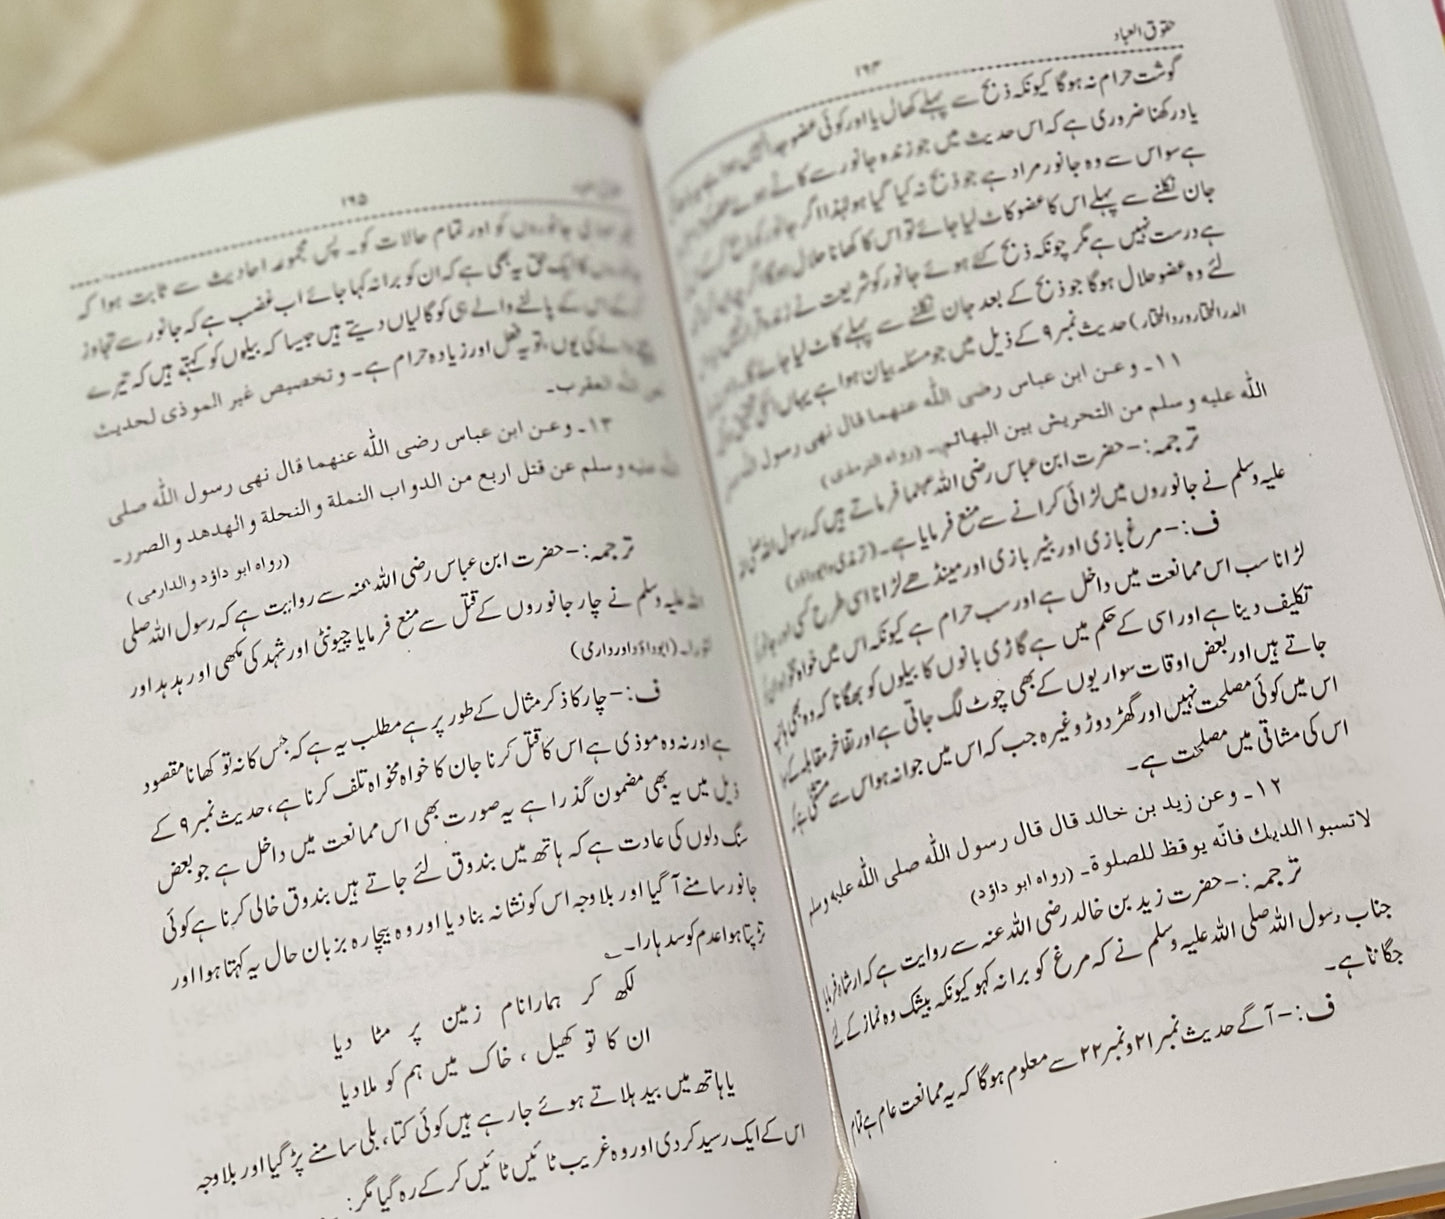 حقوق العباد
۱۶۴
گوشت حرام نہ ہوگا کیونکہ ذبح سے پہلے کھال یا اور کوئی عضو جدا
یاد رکھنا ضروری ہے کہ اس حدیث میں جو زندہ جانور سے کاٹے ہوئے
ہے سو اس سے وہ جانور مراد ہے جو ذبح نہ کیا گیا ہو لہٰذا اگر جانور کو ذبح
جان نکلنے سے پہلے اس کا عضو کاٹ لیا جائے تو اس کا کھانا حلال ہوگا
ہے درست نہیں ہے مگر چونکہ ذبح کئے ہوئے جانور کو شریعت نے زندہ
لئے وہ عضو حلال ہوگا جو ذبح کے بعد جان نکلنے سے پہلے کاٹ لیا جائے گا۔
الدر المختار ورد المختار) حدیث نمبر ۹ کے ذیل میں جو مسئلہ بیان ہوا ہے یہاں
۱۱۔ وعن ابن عباس رضی اللہ عنهما قال نهى رسول اللہ
اللہ علیه وسلم من التحریش بین البهائم۔ (رواه الترمذی)
ترجمہ:- حضرت ابن عباس رضی اللہ عنہما فرماتے ہیں کہ رسول اللہ صلی
علیہ وسلم نے جانوروں میں لڑائی کرانے سے منع فرمایا ہے۔ (ترمذی وابوداؤد)
ف:- مرغ بازی اور بٹیر بازی اور مینڈھے لڑانا اسی طرح کسی اور جانور
لڑانا سب اس ممانعت میں داخل ہے اور سب حرام ہے کیونکہ اس میں خواہ مخواہ
تکلیف دینا ہے اور اسی کے حکم میں ہے گاڑی بانوں کا بیلوں کو بھگانا کہ وہ بھی
جاتے ہیں اور بعض اوقات سواریوں کے بھی چوٹ لگ جاتی ہے اور تفاخر مقابلہ کے
اس میں کوئی مصلحت نہیں اور گھڑ دوڑ وغیرہ جب کہ اس میں جوا نہ ہو اس سے مستثنیٰ ہے
اس کی مشاقی میں مصلحت ہے۔
۱۲۔ وعن زید بن خالد قال قال رسول اللہ صلی اللہ علیه وسلم
لاتسبوا الدیك فانّه یوقظ للصلوة۔ (رواه ابو داؤد)
ترجمہ:- حضرت زید بن خالد رضی اللہ عنہ سے روایت ہے کہ ارشاد فرمایا
جناب رسول اللہ صلی اللہ علیہ وسلم نے کہ مرغ کو برا نہ کہو کیونکہ بیشک وہ نماز کے لئے
جگاتا ہے۔
ف:- آگے حدیث نمبر ۲۱ و نمبر ۲۲ سے معلوم ہوگا کہ یہ ممانعت عام ہے تمام
۱۶۵
جانوروں کو اور تمام حالات کو۔ پس مجموعہ احادیث سے ثابت ہوا کہ
کا ایک حق یہ بھی ہے کہ ان کو برا نہ کہا جائے اب غضب ہے کہ جانور سے تجاوز
کے اس کے پالنے والے ہی کو گالیاں دیتے ہیں جیسا کہ بیلوں کو کہتے ہیں کہ تیرے
والے کی یوں، تو یہ فعل اور زیادہ حرام ہے۔ وتخصیص غیر الموذی لحدیث
اللہ العقرب۔
۱۳۔ وعن ابن عباس رضی اللہ عنهما قال نهى رسول اللہ صلی
اللہ علیه وسلم عن قتل اربع من الدواب النملة والنحلة والهدهد والصرر۔
(رواه ابو داؤد والدارمی)
ترجمہ:- حضرت ابن عباس رضی اللہ عنہ سے روایت ہے کہ رسول اللہ صلی
اللہ علیہ وسلم نے چار جانوروں کے قتل سے منع فرمایا چیونٹی اور شہد کی مکھی اور ہدہد اور
(ابوداؤد اور دارمی)
ف:- چار کا ذکر مثال کے طور پر ہے مطلب یہ ہے کہ جس کا نہ تو کھانا مقصود
ہے اور نہ وہ موذی ہے اس کا قتل کرنا جان کا خواہ مخواہ تلف کرنا ہے، حدیث نمبر ۹ کے
ذیل میں یہ بھی مضمون گذرا ہے یہ صورت بھی اس ممانعت میں داخل ہے جو بعض
سنگ دلوں کی عادت ہے کہ ہاتھ میں بندوق لئے جاتے ہیں بندوق خالی کرنا ہے کوئی
جانور سامنے آ گیا اور بلاوجہ اس کو نشانہ بنا دیا اور وہ بیچارہ بزبان حال یہ کہتا ہوا اور
تڑپتا ہوا عدم کو سدہارا۔
لکھ کر ہمارا نام زمین پر مٹا دیا
ان کا تو کھیل، خاک میں ہم کو ملا دیا
یا ہاتھ میں بید ہلاتے ہوئے جا رہے ہیں کوئی کتا، بلی سامنے پڑ گیا اور بلاوجہ
اس کے ایک رسید کر دی اور وہ غریب ٹائیں ٹائیں کر کے رہ گیا مگر: